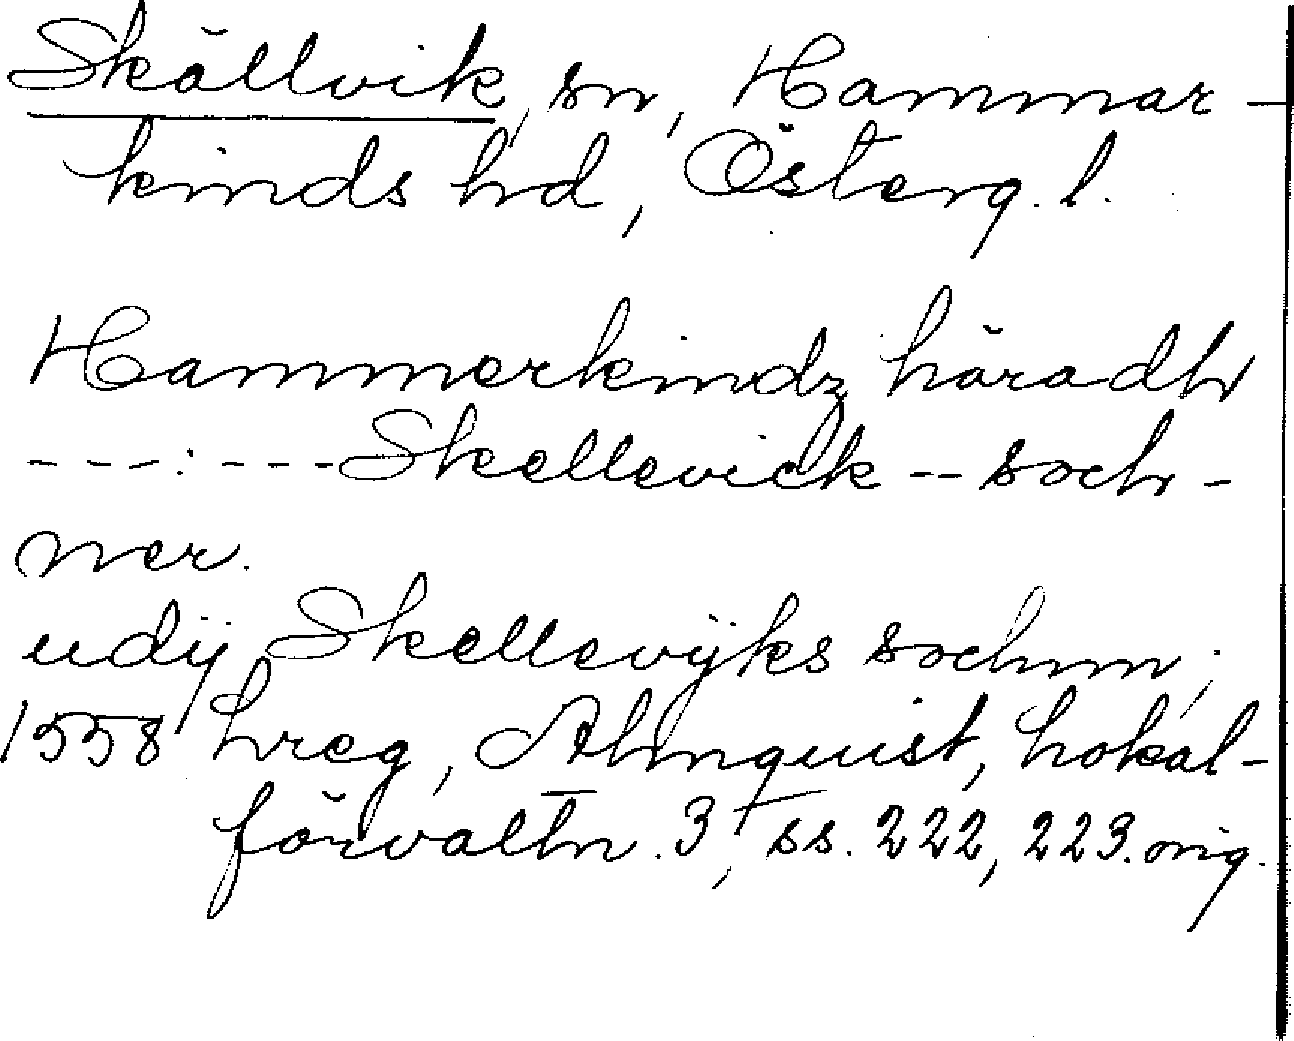 Skällvik, sn, Hammar-
kinds hd, Österg. l.
Hammerkindz häradh
---:---Skellevick--soch-
ner.
udij Skellevijks sochnn;
1558 hreg, Almquist, Lokal-
förvaltn. 3, ss. 222, 223. orig.